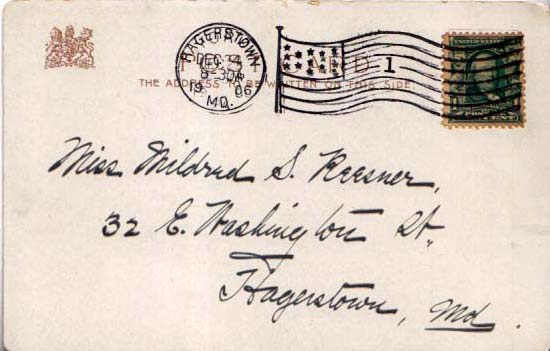 HAGERSTOWN
DEC 24
8-30A
1906
MD.
1
THE ADDRESS TO BE WRITTEN ON THIS SIDE.
Miss Mildred S. Reesner,
32 E. Washington St.,
Hagerstown, Md.